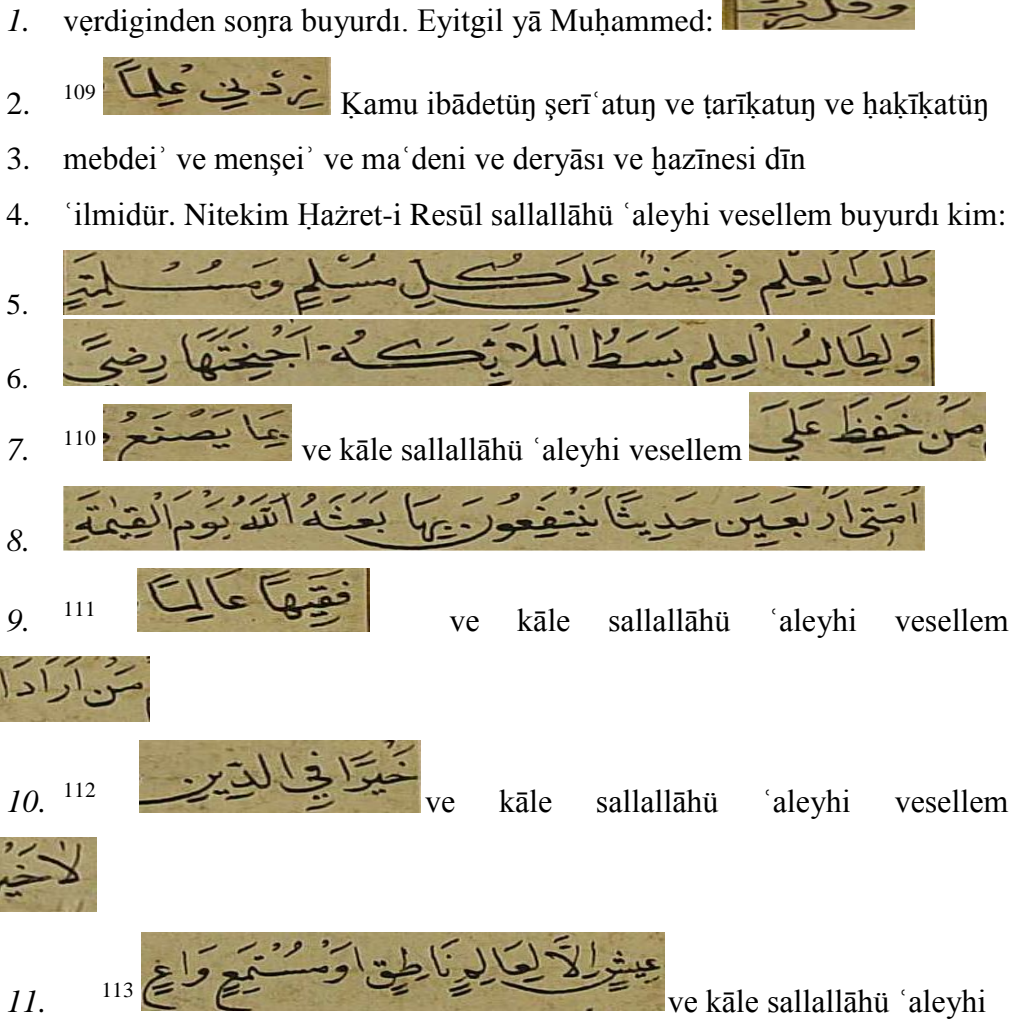 1. vẹrdiginden soŋra buyurdı. Eyitgil yā Muḥammed: وَقُلْ رَبِّ
2. 109 زِدْنِي عِلْمًا Ḳamu ibādetüŋ şerīʿatuŋ ve ṭarīḳatuŋ ve ḥaḳīḳatüŋ
3. mebdeiʾ ve menşeiʾ ve maʿdeni ve deryāsı ve ḫazīnesi dīn
4. ʿilmidür. Nitekim Ḥażret-i Resūl sallallāhü ʿaleyhi vesellem buyurdı kim:
5. طَلَبُ الْعِلْمِ فَرِيضَةٌ عَلَى كُلِّ مُسْلِمٍ وَمُسْلِمَةٍ
6. وَلِطَالِبُ الْعِلْمِ بَسَطُ الْمَلَائِكَةُ اَجْنِحَتَهَا رِضىً
7. 110 بِمَا يَصْنَعُ ve kāle sallallāhü ʿaleyhi vesellem مَنْ حَفِظَ عَلَى
8. اُمَّتِى اَرْبَعِينَ حَدِيثًا يَنْتَفِعُونَ بِهَا بَعَثَهُ اللّٰهُ يَوْمَ الْقِيٰمَةِ
9. 111 فَقِيهًا عَالِمًا ve kāle sallallāhü ʿaleyhi vesellem
مَنْ اَرَادَ
10. 112 خَيْرًا فِي الدِّينِ ve kāle sallallāhü ʿaleyhi vesellem
لَا خَيْرَ
11. 113 عَيْشٍ اِلَّا لِعَالِمٍ نَاطِقٍ اَوْ مُسْتَمِعٍ وَاعٍ ve kāle sallallāhü ʿaleyhi